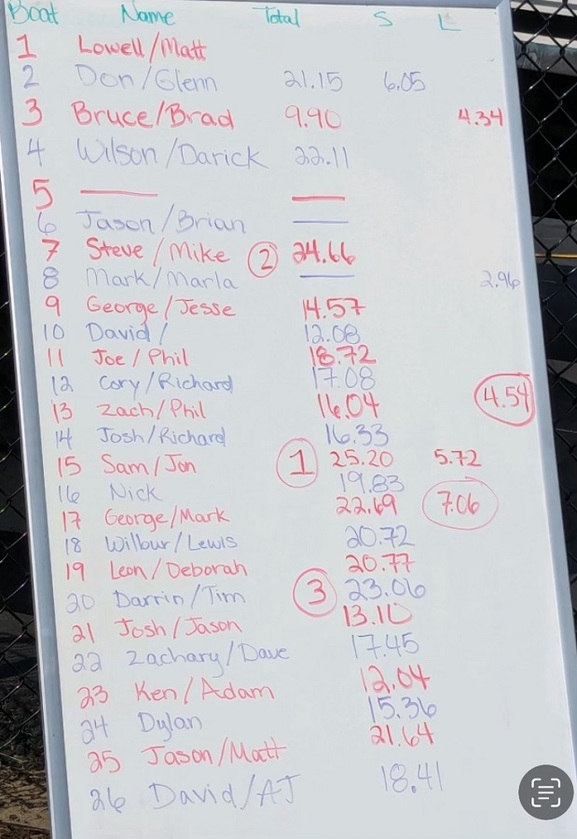 Boat Name Total S L
1 Lowell/Matt
2 Don/Glenn 21.15 6.05
3 Bruce/Brad 9.90 4.34
4 Wilson/Darick 22.11
5
6 Jason/Brian
7 Steve/Mike 2 24.66
8 Mark/Marla 2.96
9 George/Jesse 14.57
10 David/ 12.08
11 Joe/Phil 18.72
12 Cory/Richard 17.08
13 Zach/Phil 16.04 4.54
14 Josh/Richard 16.33
15 Sam/Jon 1 25.20 5.72
16 Nick 19.83
17 George/Mark 22.69 7.06
18 Wilbur/Lewis 20.72
19 Leon/Deborah 20.77
20 Darrin/Tim 3 23.06
21 Josh/Jason 13.10
22 Zachary/Dave 17.45
23 Ken/Adam 12.04
24 Dylan 15.36
25 Jason/Matt 21.64
26 David/AJ 18.41